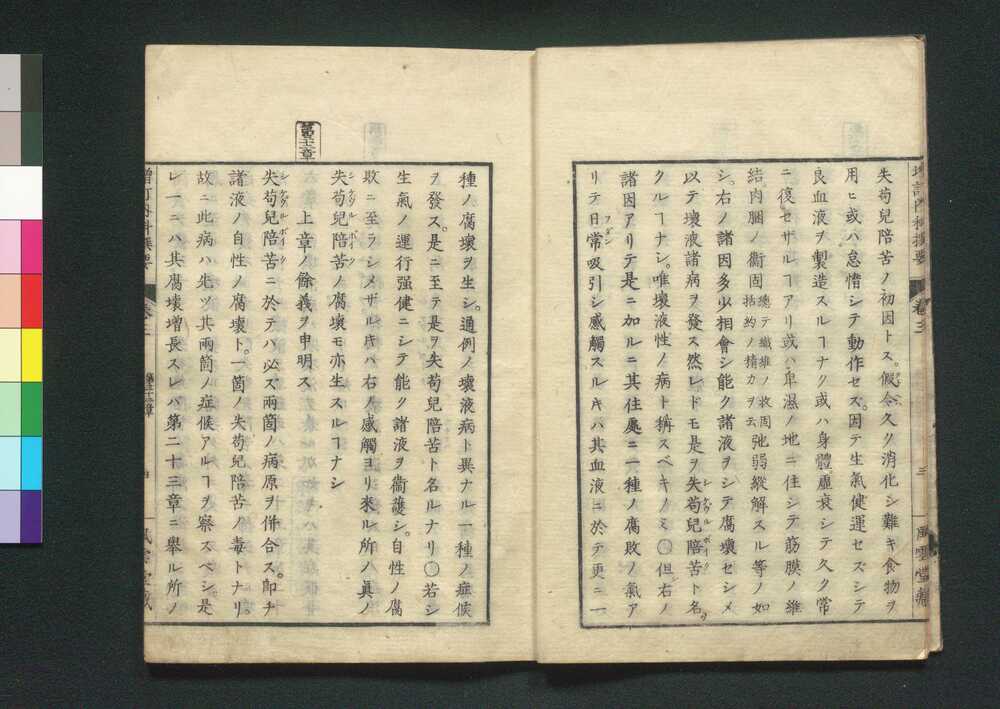 失苟兒陪苦ノ初因トス。假令久ク消化シ難キ食物ヲ
用ヒ或ハ怠惰シテ動作セズ。因テ生氣健運セズシテ
良血液ヲ製造スルヿナク或ハ身體羸衰シテ久ク常
ニ復セザルヿアリ或ハ卑濕ノ地ニ住シテ筋膜ノ維
結内膕ノ衞固總テ纖維ノ牧固括約ノ精力ヲ云弛弱縱解スル等ノ如
シ。右ノ諸因多少相會シ能ク諸液ヲシテ腐壞セシメ
以テ壞液諸病ヲ發ス然レドモ是ヲ失苟兒陪苦ト名ヅ
クルヿナシ。唯壞液性ノ病ト稱スベキノミ〇但右ノ
諸因アリテ是ニ加ルニ其住處ニ一種ノ腐敗ノ氣ア
リテ日常吸引シ感觸スルキハ其血液ニ於テ更ニ一
増訂内科撰要
卷三
三
風雲堂藏
種ノ腐壞ヲ生シ。通例ノ壞液病ト異ナル一種ノ症候
ヲ發ス。是ニ至テ是ヲ失苟兒陪苦ト名ルナリ〇若シ
生氣ノ運行强健ニシテ能ク諸液ヲ衞護シ。自性ノ腐
敗ニ至ラシメザルキハ右ノ感觸ヨリ來ル所ノ眞ノ
失苟兒陪苦ノ腐壞モ亦生スルヿナシ
上章ノ餘義ヲ申明ス
失苟兒陪苦ニ於テハ必ズ兩箇ノ病原ヲ併合ス。卽チ
諸液ノ自性ノ腐壞ト。一箇ノ失苟兒陪苦ノ毒トナリ
故ニ此病ハ先ツ其兩箇ノ症候アルヿヲ察スベシ。是
レ一ニハ其腐壞增長スレバ第二十三章ニ舉ル所ノ